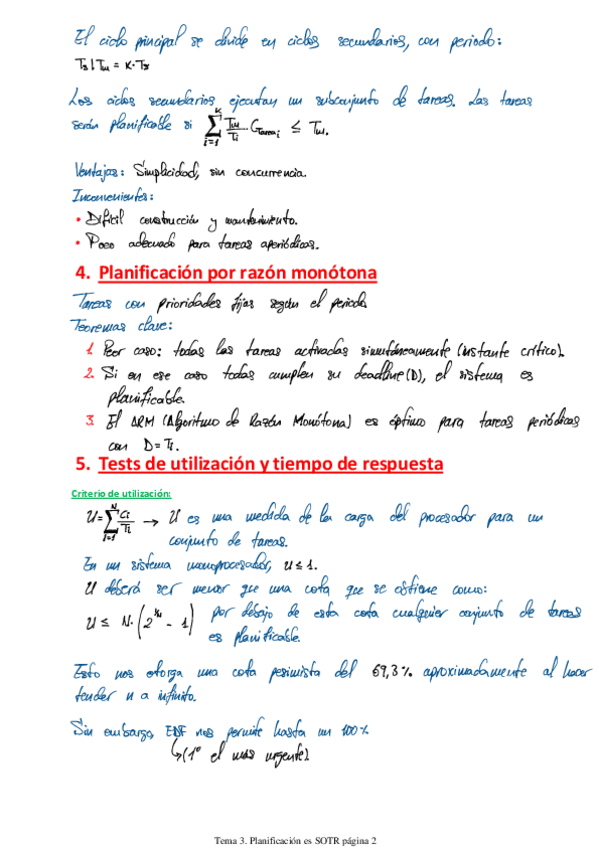 El ciclo principal se divide en ciclos secundarios, con periodo:
Ts | TM = K·Ts
Los ciclos secundarios ejecutan un subconjunto de tareas. Las tareas
serán planificable si ∑ᵢ₌₁ᴷ TM/Ti · CTareai ≤ TM.
Ventajas: Simplicidad, sin concurrencia.
Inconvenientes:
• Difícil construcción y mantenimiento.
• Poco adecuado para tareas aperiódicas.
4. Planificación por razón monótona
Tareas con prioridades fijas según el periodo
Teoremas clave:
1. Peor caso: todas las tareas activadas simultáneamente (instante crítico).
2. Si en ese caso todas cumplen su deadline (D), el sistema es
planificable.
3. El ARM (Algoritmo de Razón Monótona) es óptimo para tareas periódicas
con D = Ti.
5. Tests de utilización y tiempo de respuesta
Criterio de utilización:
U = ∑ᵢ₌₁ᴺ Ci/Ti → U es una medida de la carga del procesador para un
conjunto de tareas.
En un sistema monoprocesador, U ≤ 1.
U deberá ser menor que una cota que se obtiene como:
U ≤ N·(2^(1/N) - 1) por debajo de esta cota cualquier conjunto de tareas
es planificable.
Esto nos otorga una cota pesimista del 69,3% aproximadamente al hacer
tender n a infinito.
Sin embargo, EDF nos permite hasta un 100%
↳ (1º el más urgente)
Tema 3. Planificación es SOTR página 2